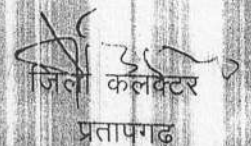 जिला कलक्टर
प्रतापगढ